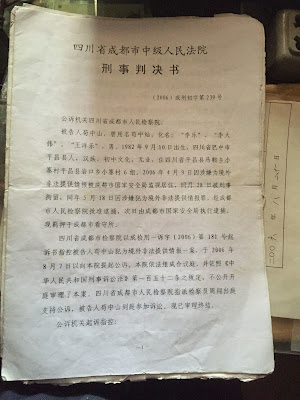 四川省成都市中级人民法院
刑事判决书
(2006)成刑初字第239号
公诉机关四川省成都市人民检察院。
被告人苟中山,曾用名苟中灿;化名:“李乐”、“李大
伟”、“王洋乐”;男,1982年9月10日出生,四川省巴中市
平昌县人,汉族,初中文化,无业,住四川省平昌县
寨村平昌县岩口乡小寨村6组,2006年4月9日因涉嫌为境外
非法提供情报被成都市国家安全局监视居住,同月28日被刑事
拘留,同年5月18日因涉嫌犯为境外非法提供情报罪,经成都
市人民检察院批准逮捕,次日由成都市国家安全局执行逮捕。
现羁押于成都市看守所。
四川省成都市检察院以成检刑一诉字(2006)第181号起
诉书指控被告人苟中山犯为境外非法提供情报一案,于2006年
8月7日以向本院提起公诉。本院依法组成合议庭,并依照《中
华人民共和国刑事诉讼法》第一百五十二条之规定,不公开开
庭审理了本案。四川省成都市人民检察院指派检察员周翔出庭
支持公诉,被告人苟中山到庭参加诉讼。现已审理终结。
公诉机关起诉指控:
-1-